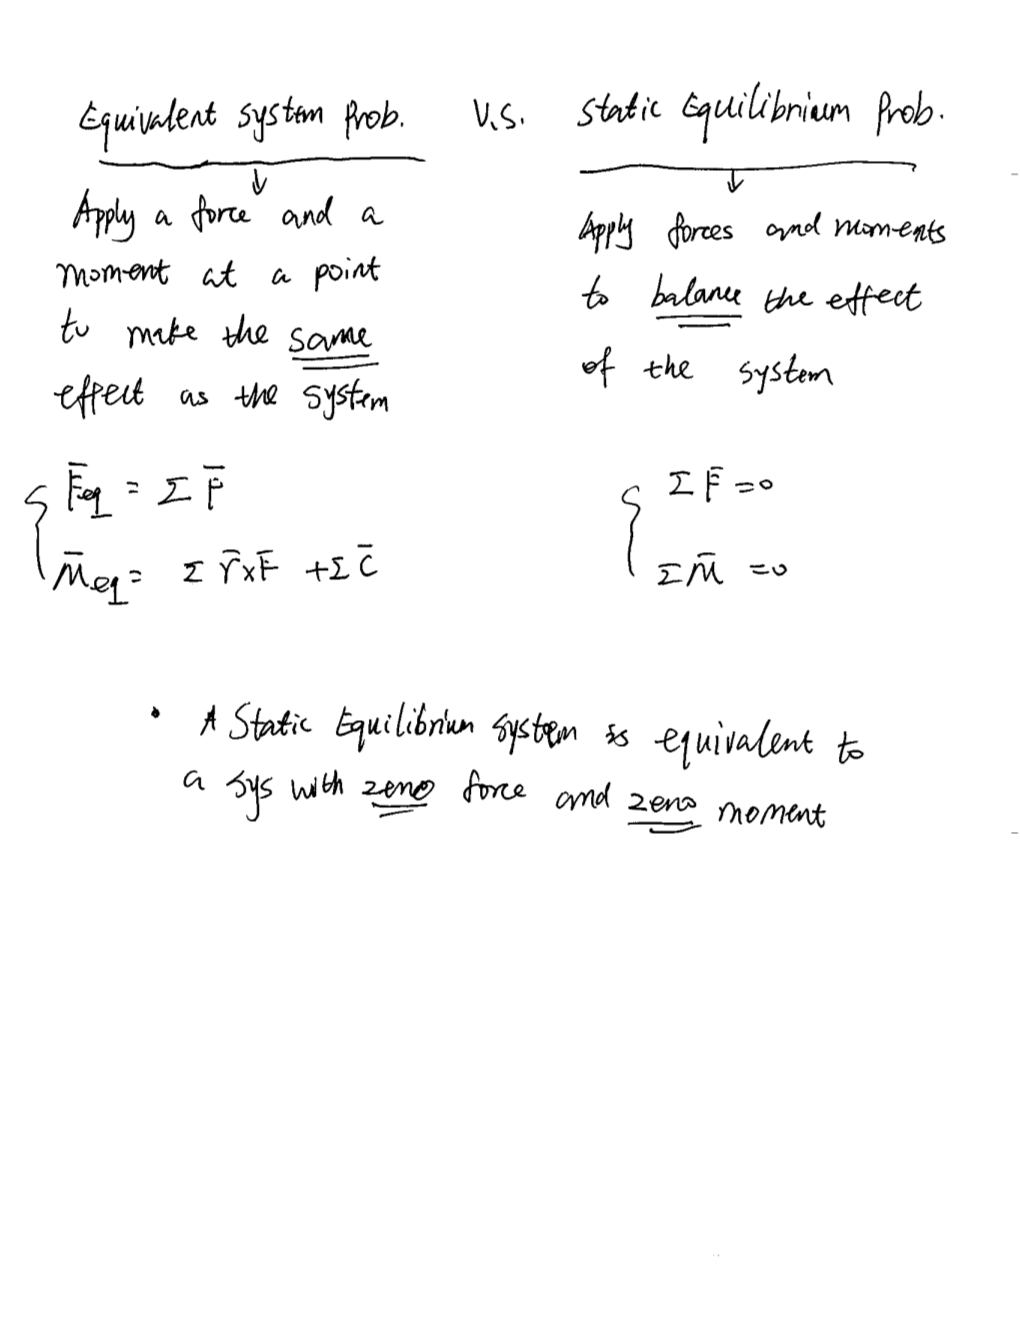 Equivalent system Prob. V.S. Static Equilibrium Prob.
Apply a force and a
moment at a point
to make the same
effect as the system
Apply forces and moments
to balance the effect
of the system
F̄eq = Σ F̄
M̄eq = Σ r̄×F̄ + Σ C̄
Σ F̄ = 0
Σ M̄ = 0
• A Static Equilibrium system is equivalent to
a sys with zero force and zero moment